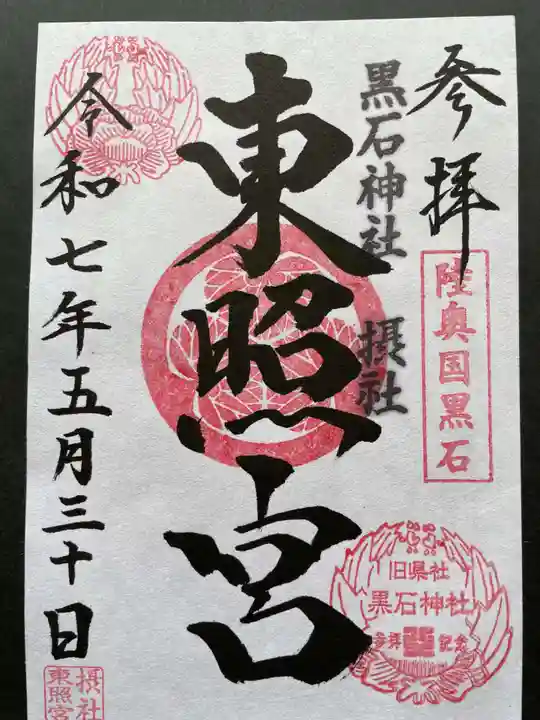 参拝
陸奥国黒石
黒石神社 摂社
東照宮
令和七年五月三十日
旧県社
黒石神社
参拝 記念
摂社
東照宮